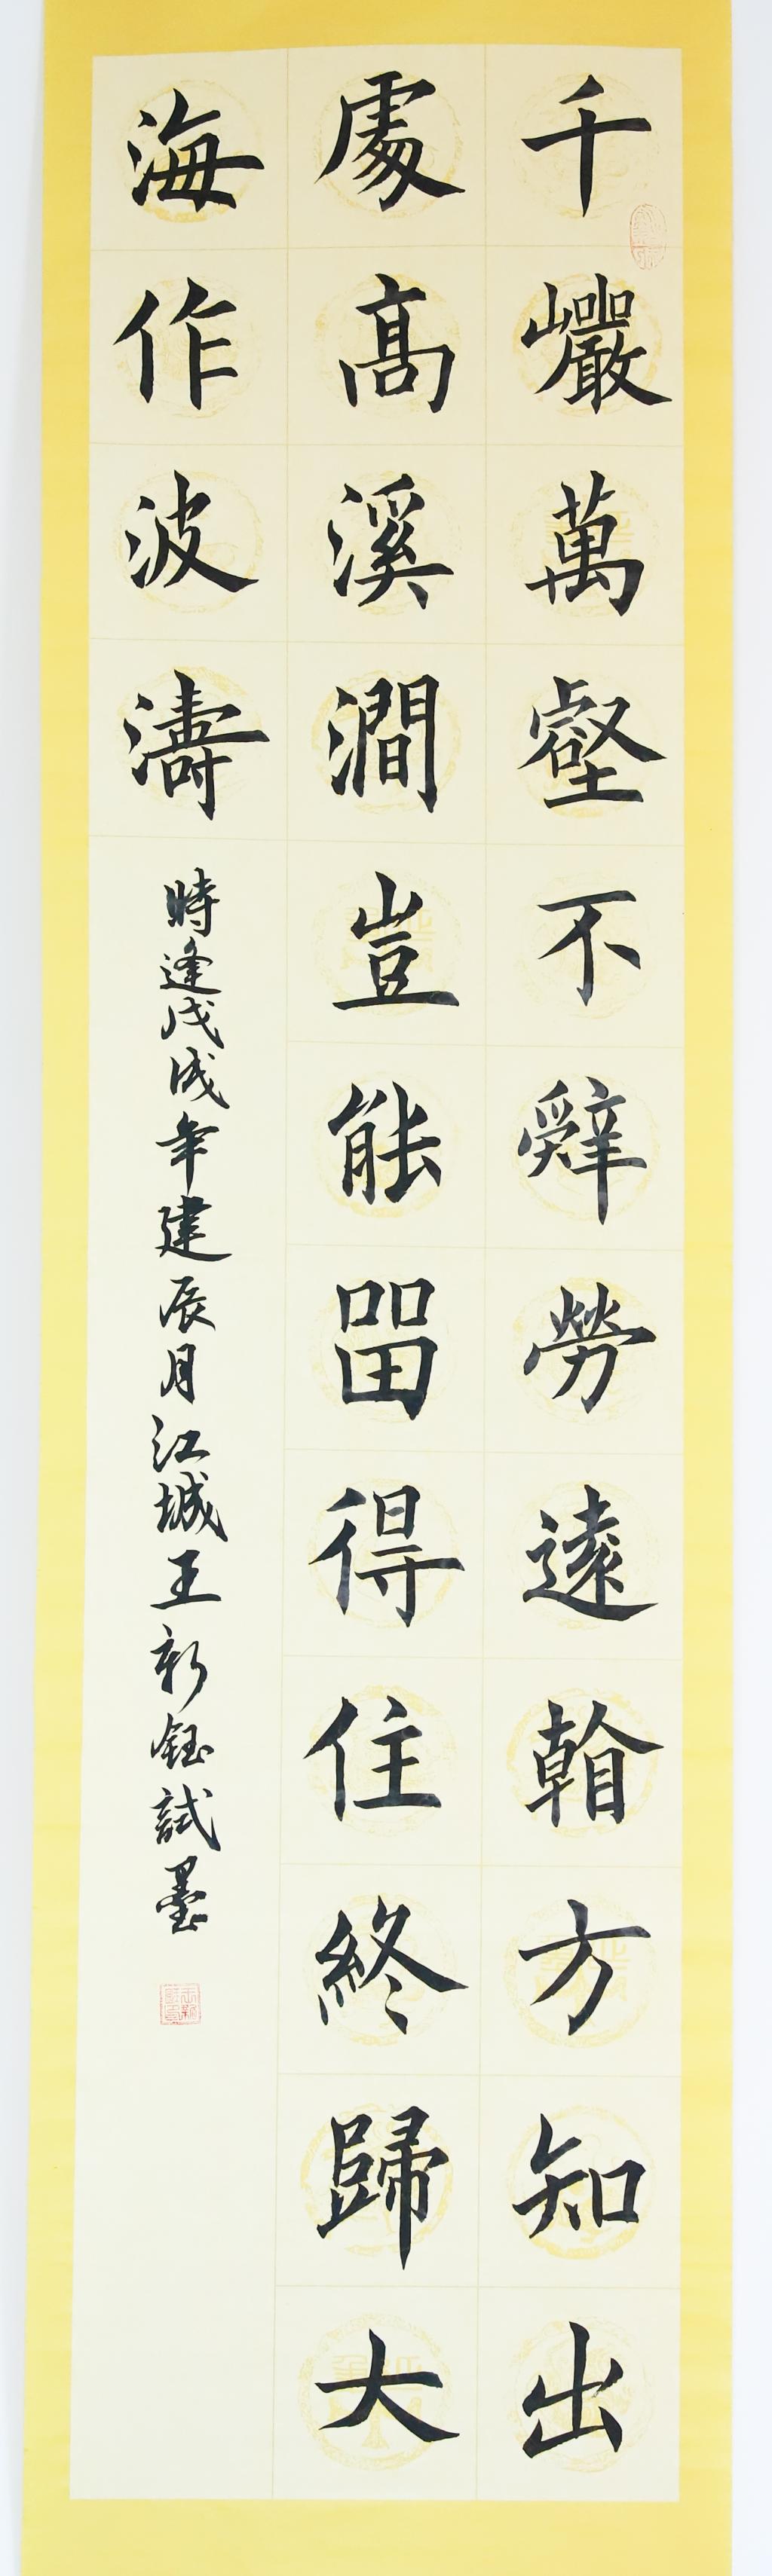 千巖萬壑不辤勞逺㸔方知出
處髙溪澗豈能畱得住終歸大
海作波濤
時逢戊戌年建辰月江城王新鈺試墨